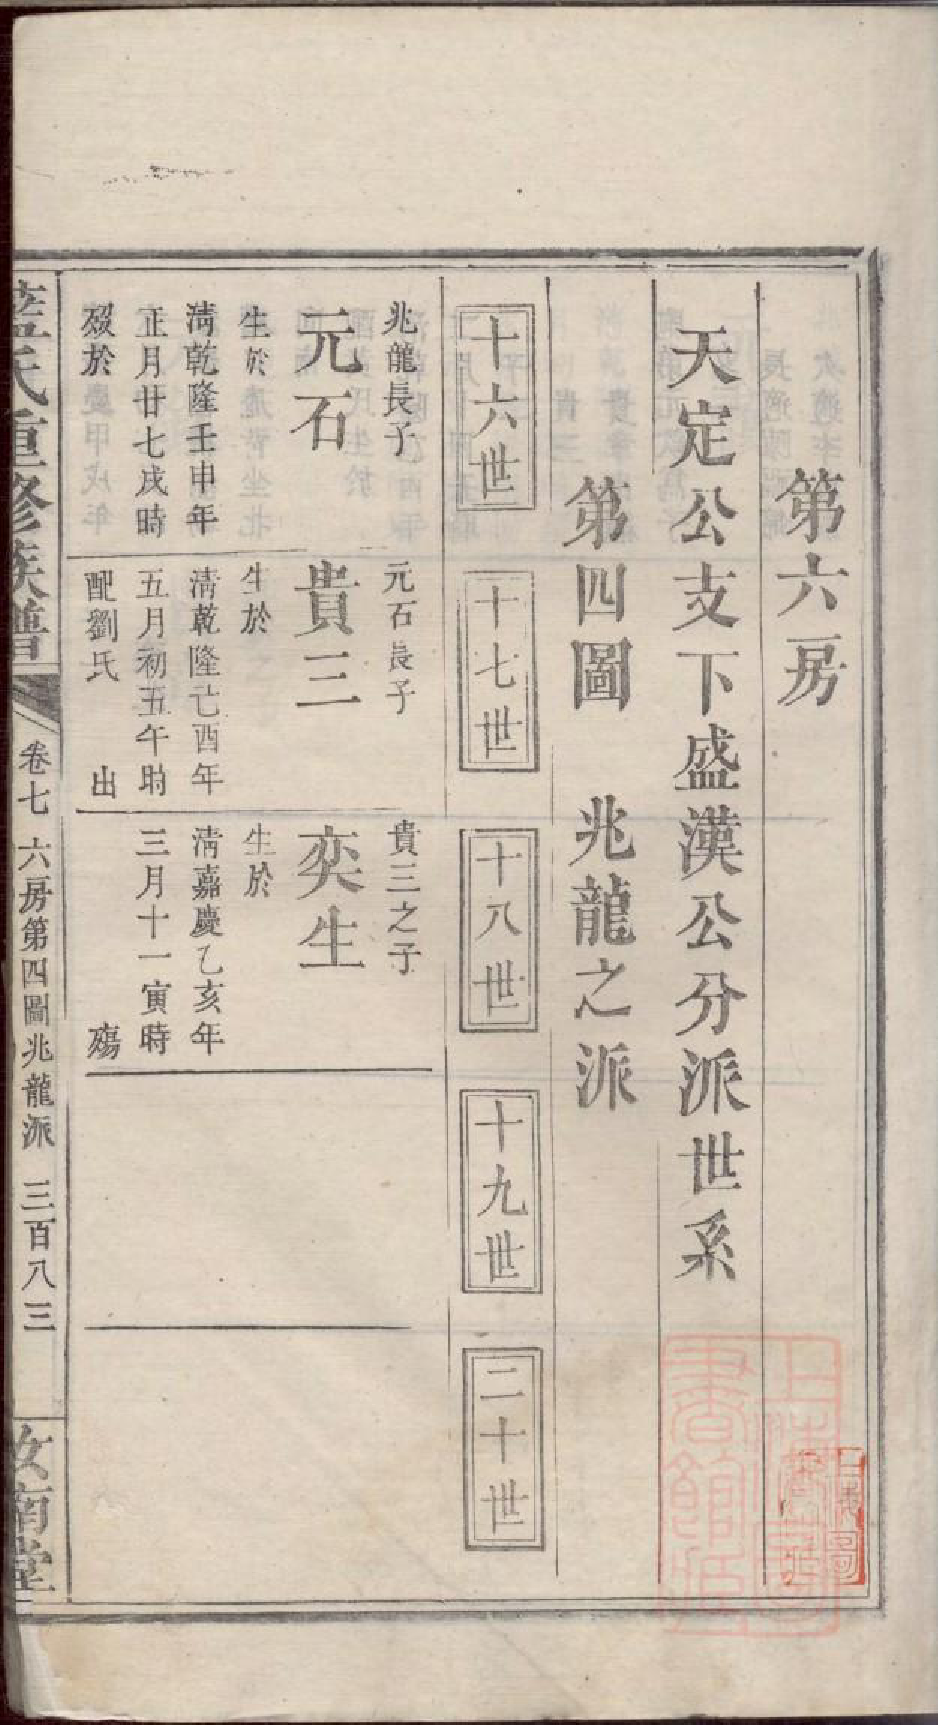 第六房
天定公支下盛漢公分派世系
第四圖 兆龍之派
十六世
十七世
十八世
十九世
二十世
兆龍長子
元石
生於
清乾隆壬申年
正月廿七戌時
歿於
元石長子
貴三
生於
清乾隆己酉年
五月初五午時
配劉氏 出
貴三之子
奕生
生於
清嘉慶乙亥年
三月十一寅時
殤
藍氏重修族譜
卷七 六房第四圖兆龍派 三百八三
汝南堂